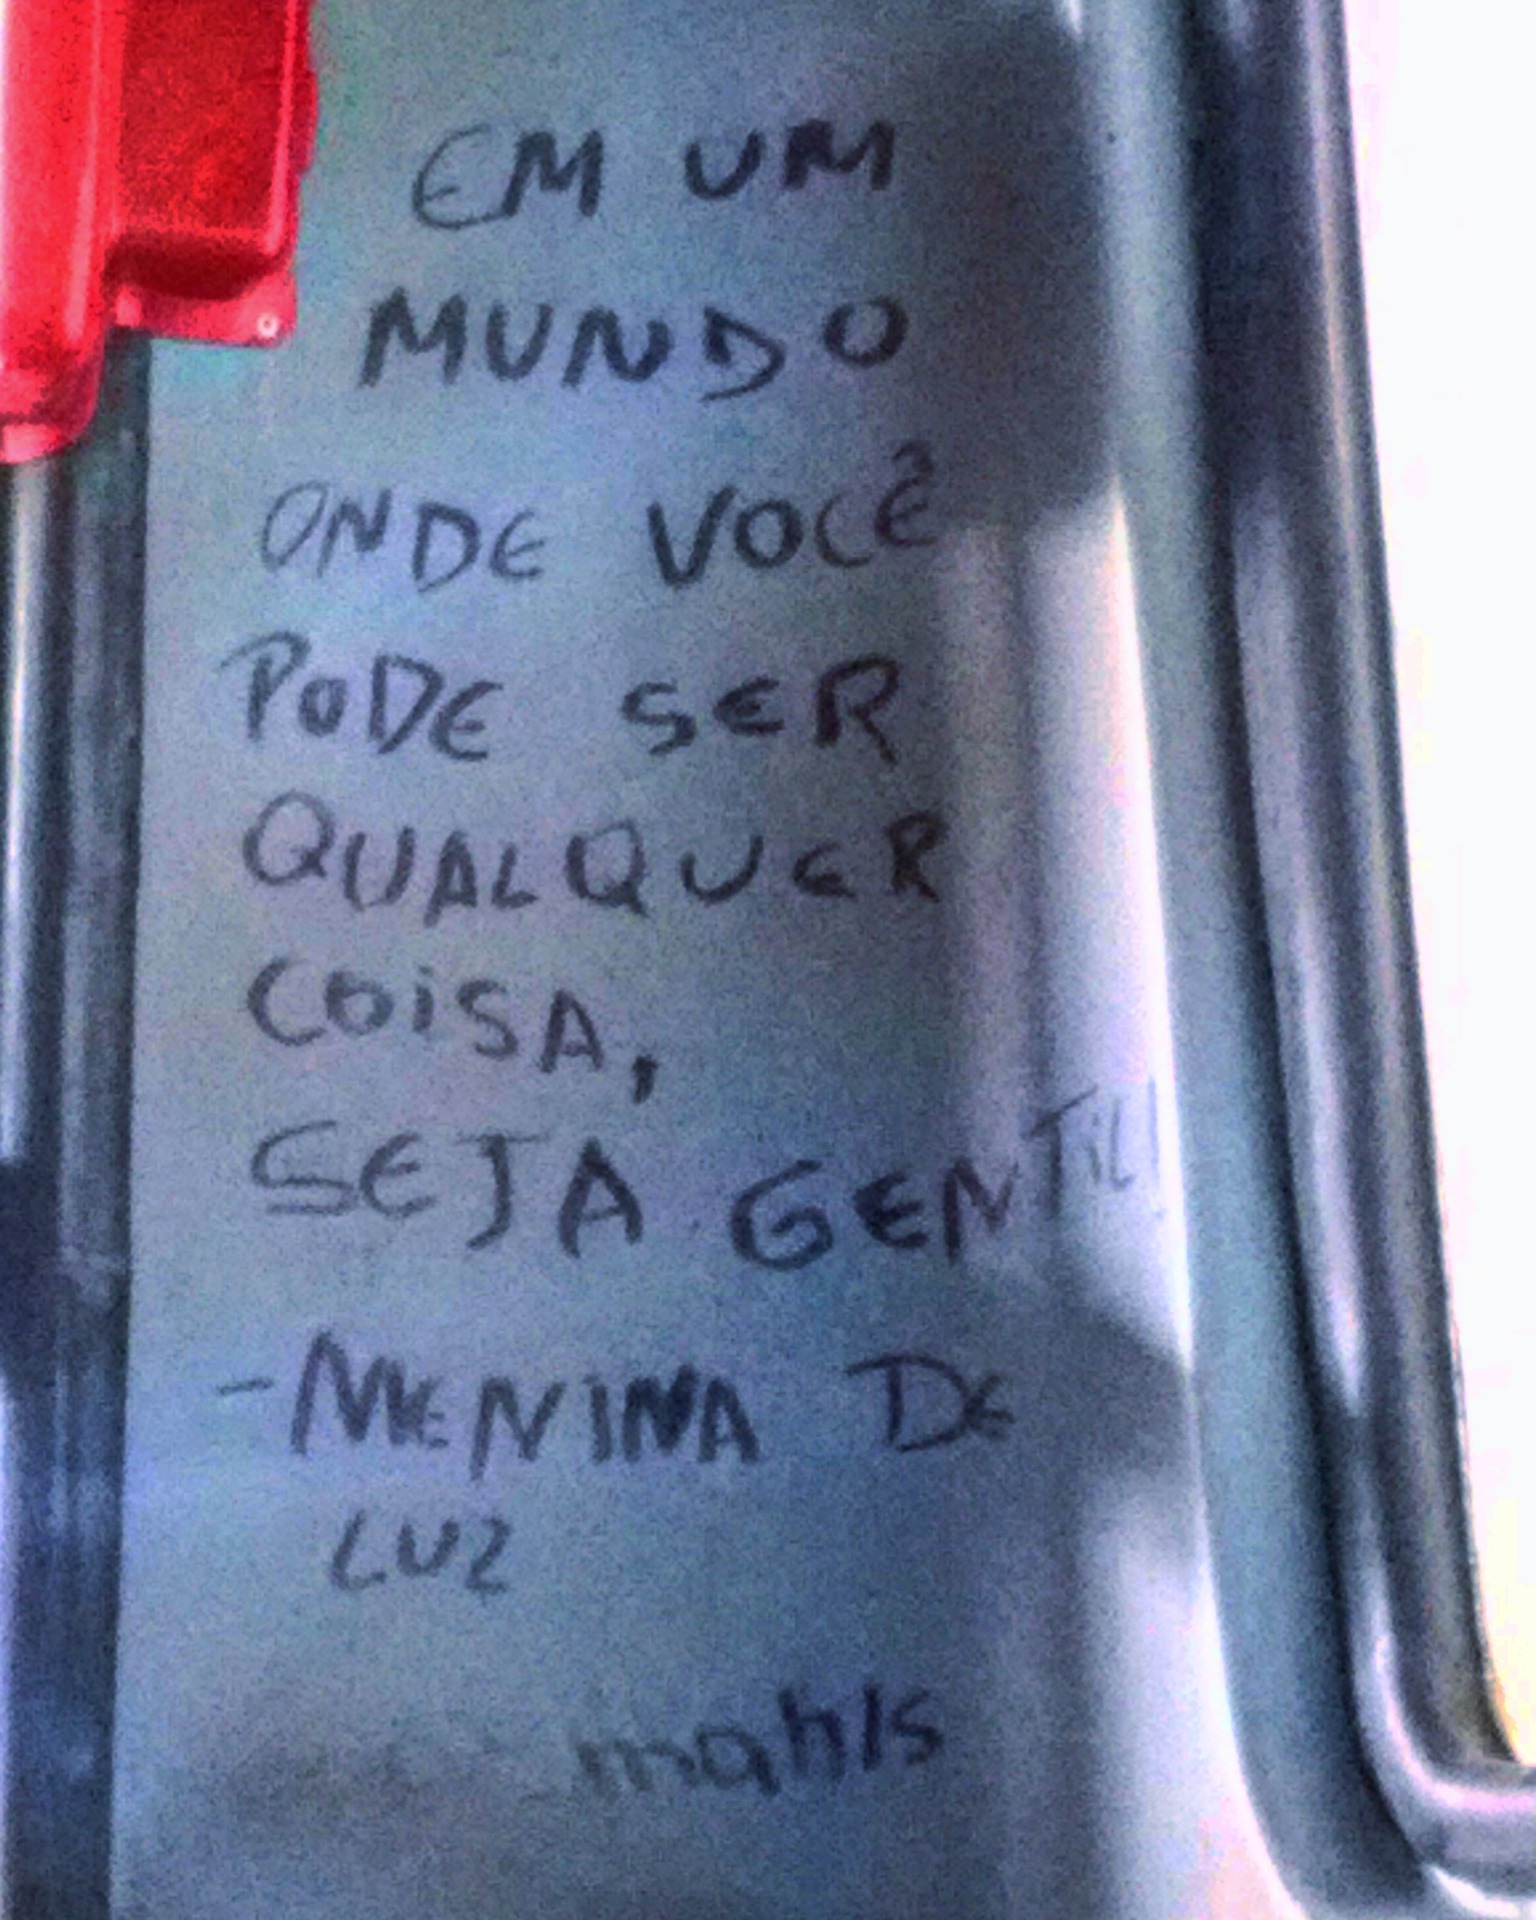 EM UM
MUNDO
ONDE VOCÊ
PODE SER
QUALQUER
COISA,
SEJA GENTIL!
-MENINA DE
LUZ